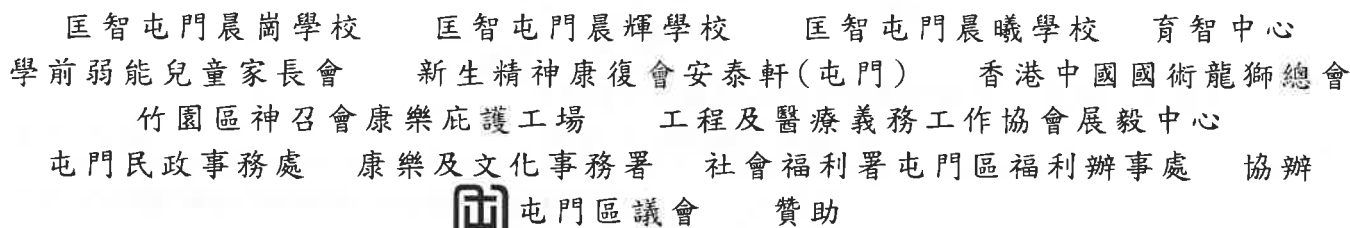 匡智屯門晨崗學校 匡智屯門晨輝學校 匡智屯門晨曦學校 育智中心
學前弱能兒童家長會 新生精神康復會安泰軒(屯門) 香港中國國術龍獅總會
竹園區神召會康樂庇護工場 工程及醫療義務工作協會展毅中心
屯門民政事務處 康樂及文化事務署 社會福利署屯門區福利辦事處 協辦
屯門區議會 贊助